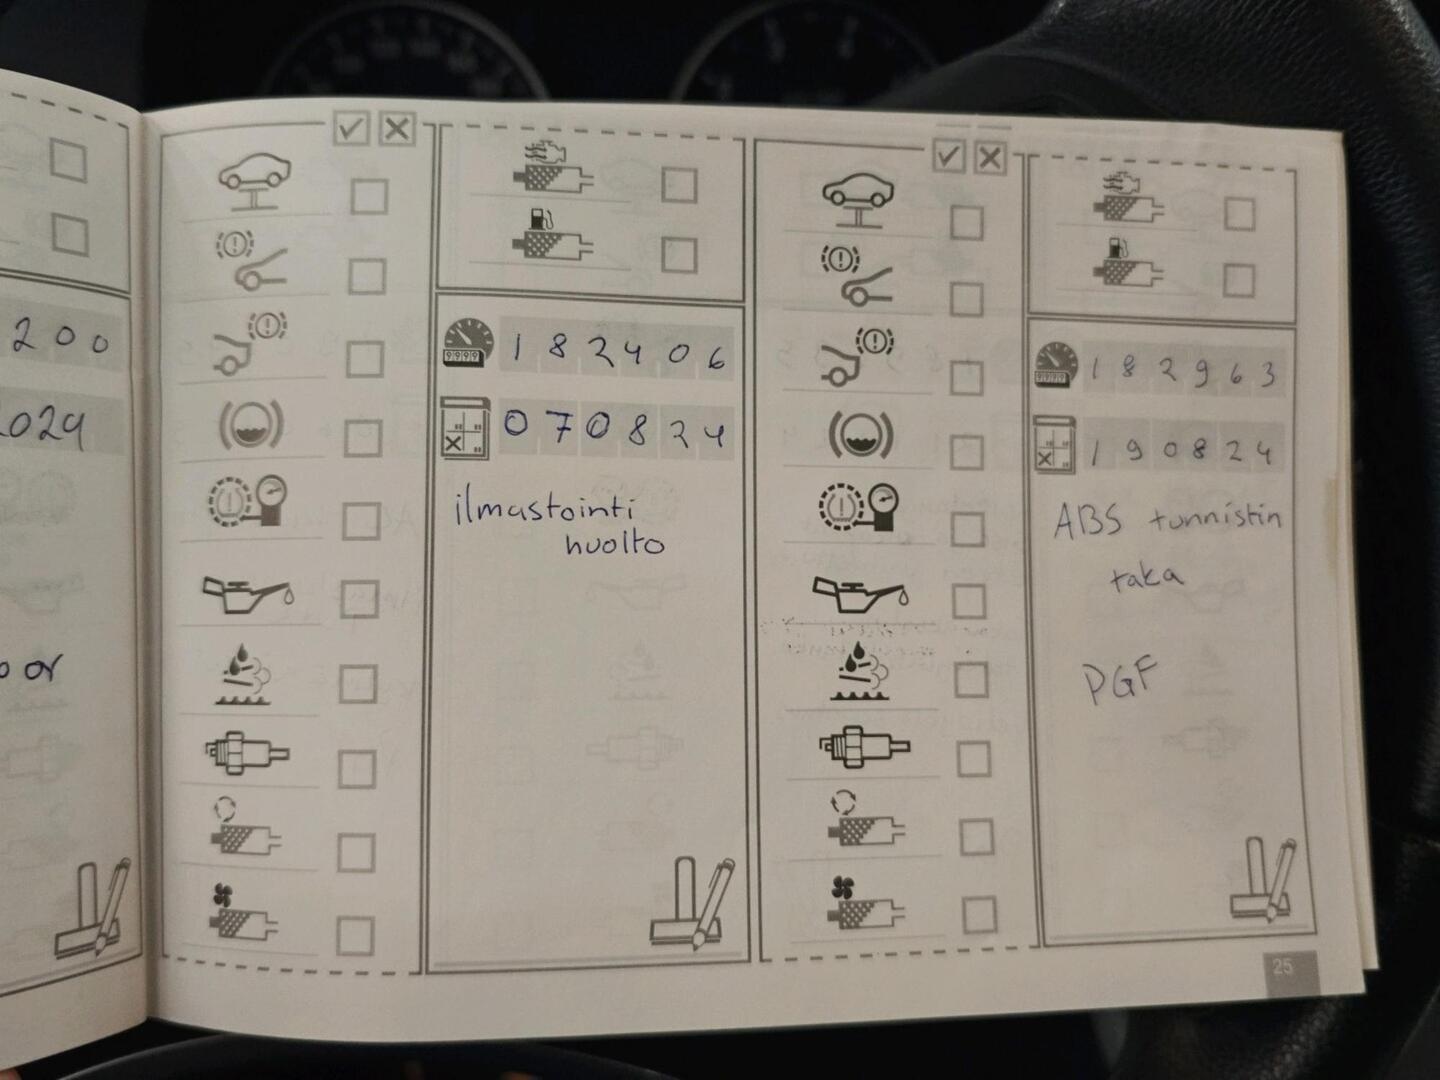 200
2024
182406
070824
ilmastointi
huolto
182963
190824
ABS tunnistin
taka
PGF
25